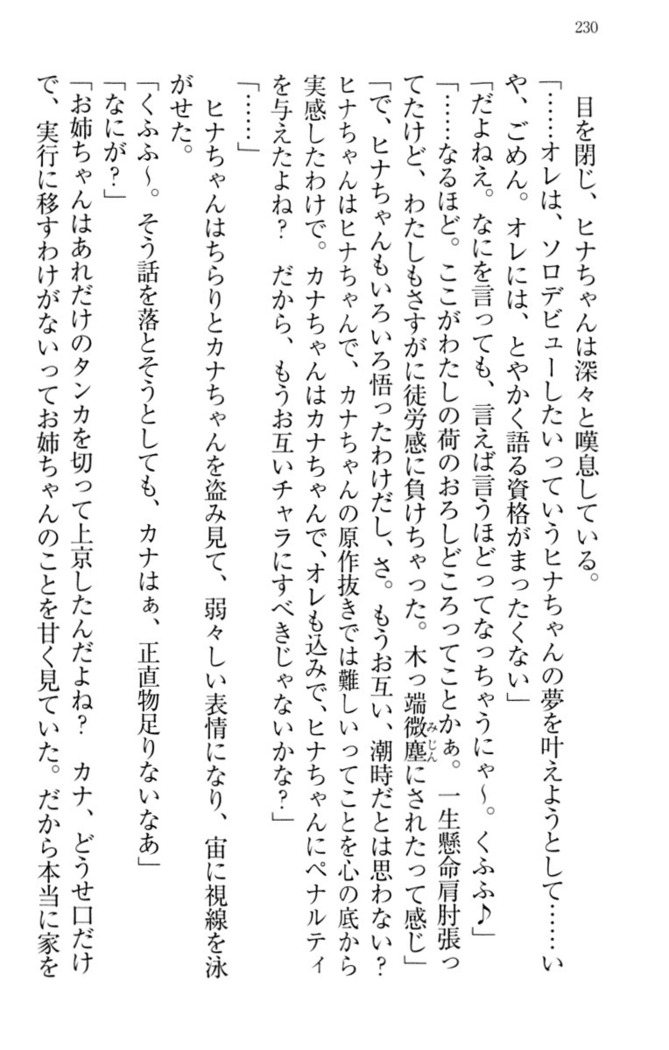 230
目を閉じ、ヒナちゃんは深々と嘆息している。
「……オレは、ソロデビューしたいっていうヒナちゃんの夢を叶えようとして……い
や、ごめん。オレには、とやかく語る資格がまったくない」
「だよねえ。なにを言っても、言えば言うほどってなっちゃうにゃ～。くふふ♪」
「……なるほど。ここがわたしの荷のおろしどころってことかぁ。一生懸命肩肘張っ
てたけど、わたしもさすがに徒労感に負けちゃった。木っ端微塵にされたって感じ」
「で、ヒナちゃんもいろいろ悟ったわけだし、さ。もうお互い、潮時だとは思わない？
ヒナちゃんはヒナちゃんで、カナちゃんの原作抜きでは難しいってことを心の底から
実感したわけで。カナちゃんはカナちゃんで、オレも込みで、ヒナちゃんにペナルティ
を与えたよね？　だから、もうお互いチャラにすべきじゃないかな？」
「……」
ヒナちゃんはちらりとカナちゃんを盗み見て、弱々しい表情になり、宙に視線を泳
がせた。
「くふふ～。そう話を落とそうとしても、カナはぁ、正直物足りないなあ」
「なにが？」
「お姉ちゃんはあれだけのタンカを切って上京したんだよね？　カナ、どうせ口だけ
で、実行に移すわけがないってお姉ちゃんのことを甘く見ていた。だから本当に家を